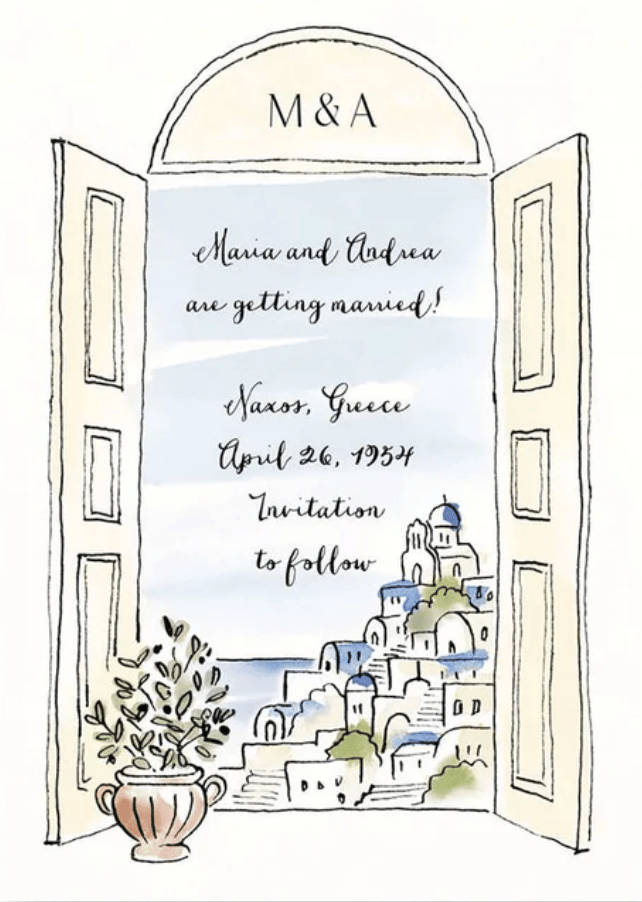 M & A
Maria and Andrea
are getting married!
Naxos, Greece
April 26, 1954
Invitation
to follow